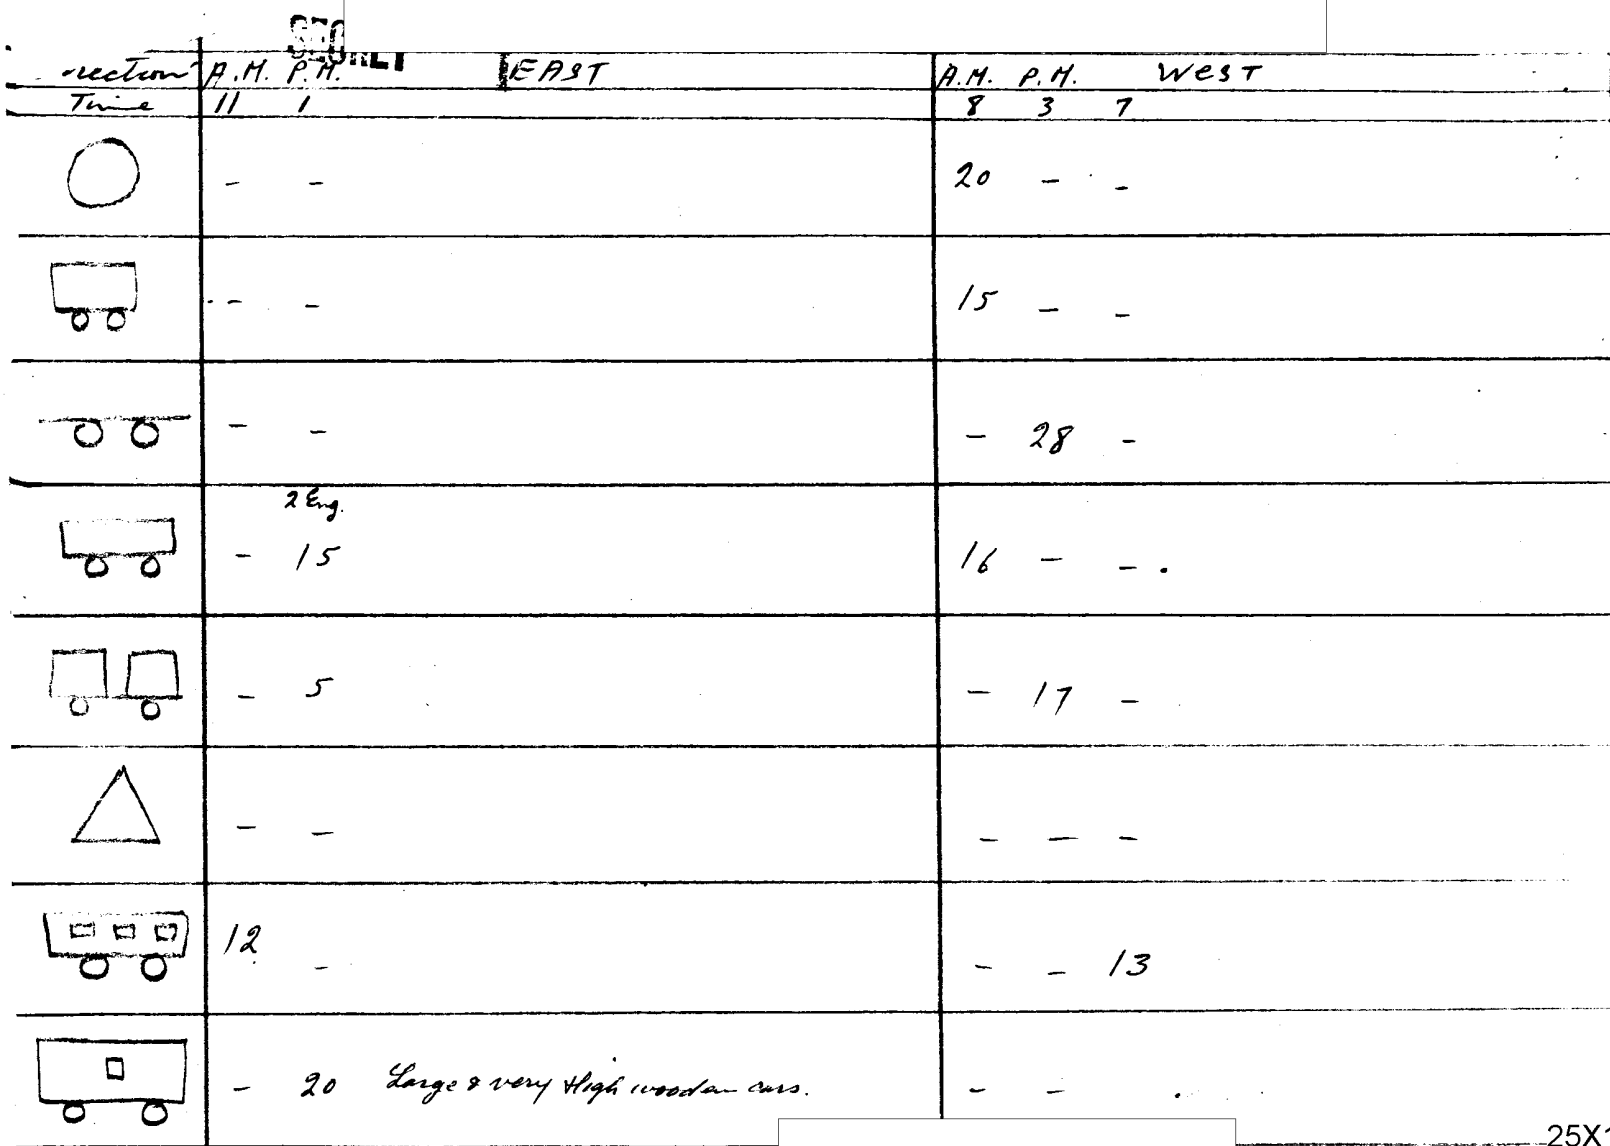 SECRET
rection A.M. P.M. EAST A.M. P.M. West
Time 11 1 8 3 7
- - 20 - -
- - 15 - -
- - - 28 -
2 Eng.
- 15 16 - -.
- 5 - 17 -
- - - - -
12 - - - 13
- 20 Large & very High wooden cars. - - .
25X1